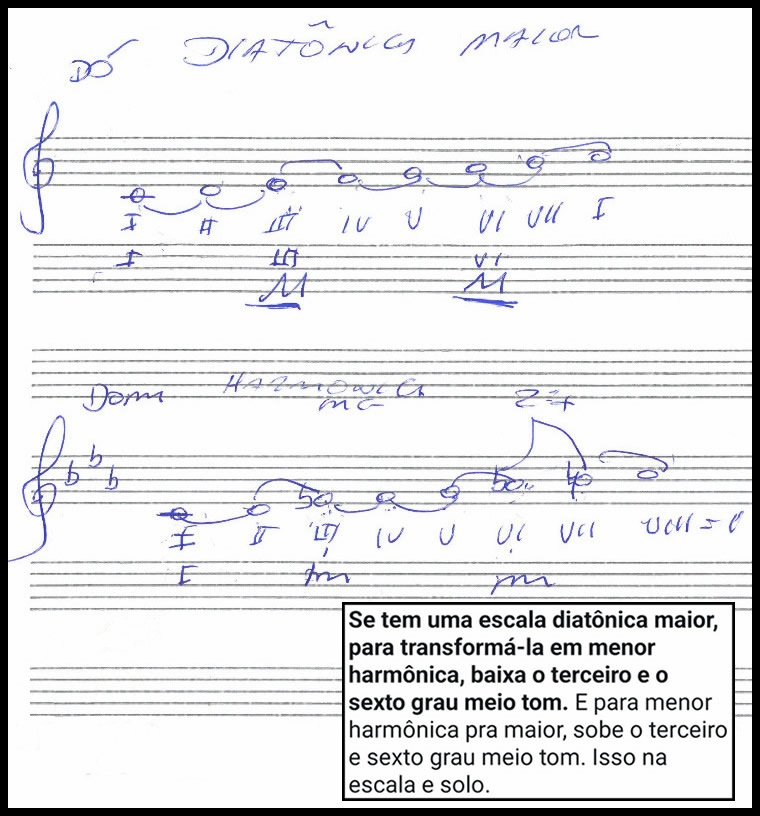 DÓ DIATÔNICA MAIOR
I II III IV V VI VII I
I III VI
M M
Dom HARMONICA
I II III IV V VI VII VIII = I
I m m
Se tem uma escala diatônica maior,
para transformá-la em menor
harmônica, baixa o terceiro e o
sexto grau meio tom. E para menor
harmônica pra maior, sobe o terceiro
e sexto grau meio tom. Isso na
escala e solo.